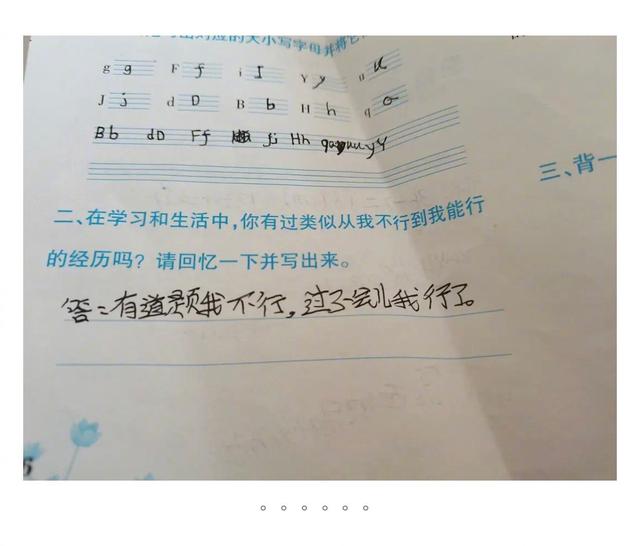 写出对应的大小写字母并将它
g g F f i I Y y u u
J j d D B b H h q a
Bb dD Ff ji Hh
三、背一
二、在学习和生活中,你有过类似从我不行到我能行
的经历吗?请回忆一下并写出来。
答:有道题我不行,过了会儿我行了。
6
。。。。。。